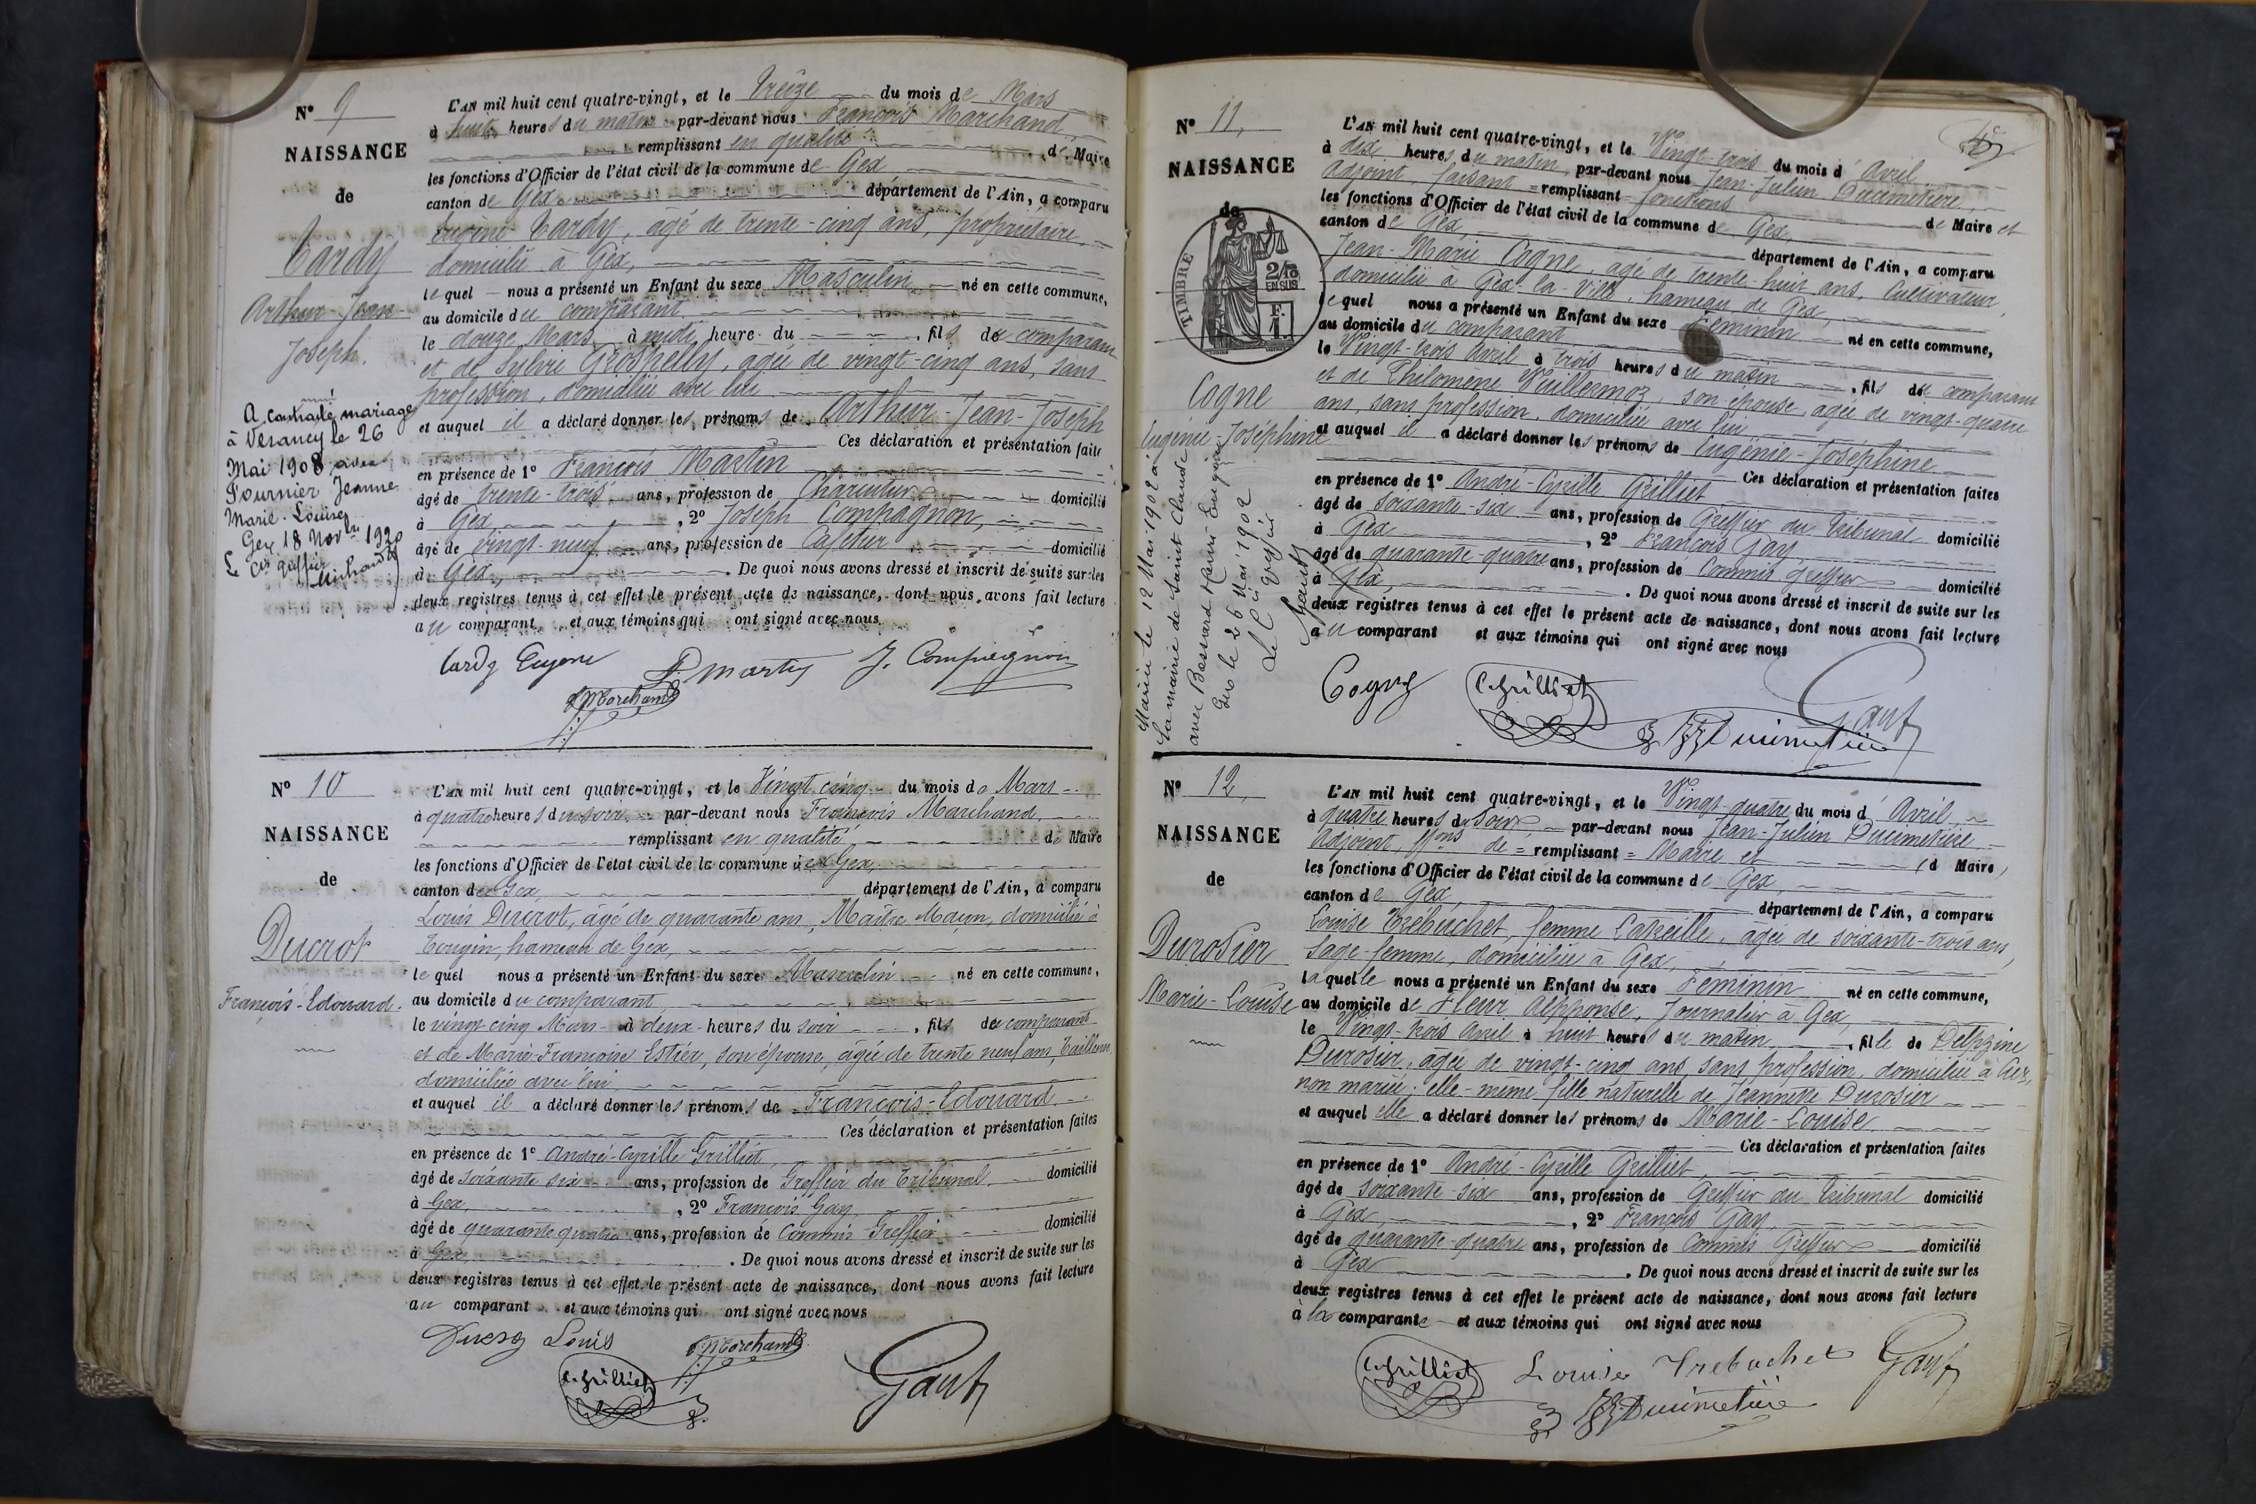 N° 9
NAISSANCE
de
Tardy
Arthur-Jean-
Joseph.
A contracté mariage
à Vesancy le 26
Mai 1908 avec
Fournier Jeanne
Marie-Louise
Gex 18 Novbre 1920
Le Cis greffier
L'AN mil huit cent quatre-vingt, et le Treize du mois de Mars
à huit heures du matin par-devant nous François Marchand,
remplissant en qualité de Maire
les fonctions d'Officier de l'état civil de la commune de Gex
canton de Gex département de l'Ain, a comparu
Eugène Tardy, agé de trente-cinq ans, propriétaire
domicilié à Gex,
lequel nous a présenté un Enfant du sexe Masculin né en cette commune,
au domicile du comparant
le douze Mars à midi heure du , fils du comparant
et de Sylvie Grospelly, agée de vingt-cinq ans, sans
profession, domiciliée avec lui
et auquel il a déclaré donner les prénoms de Arthur-Jean-Joseph
Ces déclaration et présentation faite
en présence de 1° François Martin
âgé de trente-trois ans, profession de Charcutier domicilié
à Gex , 2° Joseph Compagnon,
âgé de vingt-neuf ans, profession de Cafetier domicilié
à Gex . De quoi nous avons dressé et inscrit de suite sur les
deux registres tenus à cet effet le présent acte de naissance, dont nous avons fait lecture
au comparant et aux témoins qui ont signé avec nous
Tardy Eugene
F. Martin
J. Compagnon
F. Marchand
N° 10
NAISSANCE
de
Ducrot
François-Edouard.
L'AN mil huit cent quatre-vingt, et le Vingt cinq du mois de Mars
à quatre heures du soir par-devant nous François Marchand,
remplissant en qualité de Maire
les fonctions d'Officier de l'état civil de la commune de Gex,
canton de Gex, département de l'Ain, a comparu
Louis Ducrot, âgé de quarante ans, Maître Maçon, domicilié à
Tougin, hameau de Gex,
lequel nous a présenté un Enfant du sexe Masculin né en cette commune,
au domicile du comparant
le vingt cinq Mars à deux heures du soir , fils du comparant
et de Marie Françoise Estier, son épouse, âgée de trente neuf ans, Tailleuse,
domiciliée avec lui
et auquel il a déclaré donner les prénoms de François-Edouard
Ces déclaration et présentation faites
en présence de 1° André-Cyrille Grilliet,
âgé de soixante six ans, profession de Greffier du Tribunal domicilié
à Gex , 2° François Gay
âgé de quarante quatre ans, profession de Commis Greffier domicilié
à Gex . De quoi nous avons dressé et inscrit de suite sur les
deux registres tenus à cet effet le présent acte de naissance, dont nous avons fait lecture
au comparant et aux témoins qui ont signé avec nous
Louis
F. Marchand
C. Grilliet
N° 11,
NAISSANCE
de
TIMBRE
2/10
EN SUS
F.
1.
Cogne
Eugénie-Joséphine
Mariée le 12 Mai 1902 à
La mairie de Saint Claude
avec Bossard Henri Eugène
Gex le 26 Mai 1902
Le Cis Greffier
L'AN mil huit cent quatre-vingt, et le Vingt-trois du mois d' Avril
à dix heures du matin, par-devant nous Jean-Julien Ducimetière
Adjoint, faisant remplissant fonctions de Maire et
les fonctions d'Officier de l'état civil de la commune de Gex,
canton de Gex département de l'Ain, a comparu
Jean-Marie Cogne, agé de trente-huit ans, Cultivateur,
domicilié à Gex-la-Ville, hameau de Gex,
lequel nous a présenté un Enfant du sexe Féminin né en cette commune,
au domicile du comparant
le Vingt-trois Avril à trois heures du matin , fils du comparant
et de Philomène Vuillermoz, son épouse, agée de vingt-quatre
ans, sans profession, domiciliée avec lui
et auquel il a déclaré donner les prénoms de Eugénie-Joséphine
Ces déclaration et présentation faites
en présence de 1° André-Cyrille Grilliet
âgé de soixante-six ans, profession de Greffier du Tribunal domicilié
à Gex , 2° François Gay
âgé de quarante-quatre ans, profession de Commis greffier domicilié
à Gex, . De quoi nous avons dressé et inscrit de suite sur les
deux registres tenus à cet effet le présent acte de naissance, dont nous avons fait lecture
au comparant et aux témoins qui ont signé avec nous
Cogne
C. Grilliet
Ducimetière
N° 12,
NAISSANCE
de
Durosier
Marie-Louise
L'AN mil huit cent quatre-vingt, et le Vingt-quatre du mois d' Avril
à quatre heures du Soir par-devant nous Jean-Julien Ducimetière
Adjoint, ffons de remplissant Maire et (d Maire)
les fonctions d'Officier de l'état civil de la commune de Gex,
canton de Gex département de l'Ain, a comparu
Louise Trébuchet, femme Lareille, agée de soixante-trois ans,
Sage-femme, domiciliée à Gex,
laquelle nous a présenté un Enfant du sexe Féminin né en cette commune,
au domicile de Fleur Alphonse, Journalier à Gex,
le Vingt-trois Avril à huit heures du matin , fille de Delphine
Durosier, agée de vingt-cinq ans, sans profession, domiciliée à Gex,
non mariée; elle-même fille naturelle de Jeannette Durosier
et auquel elle a déclaré donner les prénoms de Marie-Louise
Ces déclaration et présentation faites
en présence de 1° André-Cyrille Grilliet,
âgé de soixante-six ans, profession de Greffier du Tribunal domicilié
à Gex , 2° François Gay
âgé de quarante-quatre ans, profession de Commis Greffier domicilié
à Gex . De quoi nous avons dressé et inscrit de suite sur les
deux registres tenus à cet effet le présent acte de naissance, dont nous avons fait lecture
à la comparante et aux témoins qui ont signé avec nous
C. Grilliet
Louise Trebuchet
Ducimetière